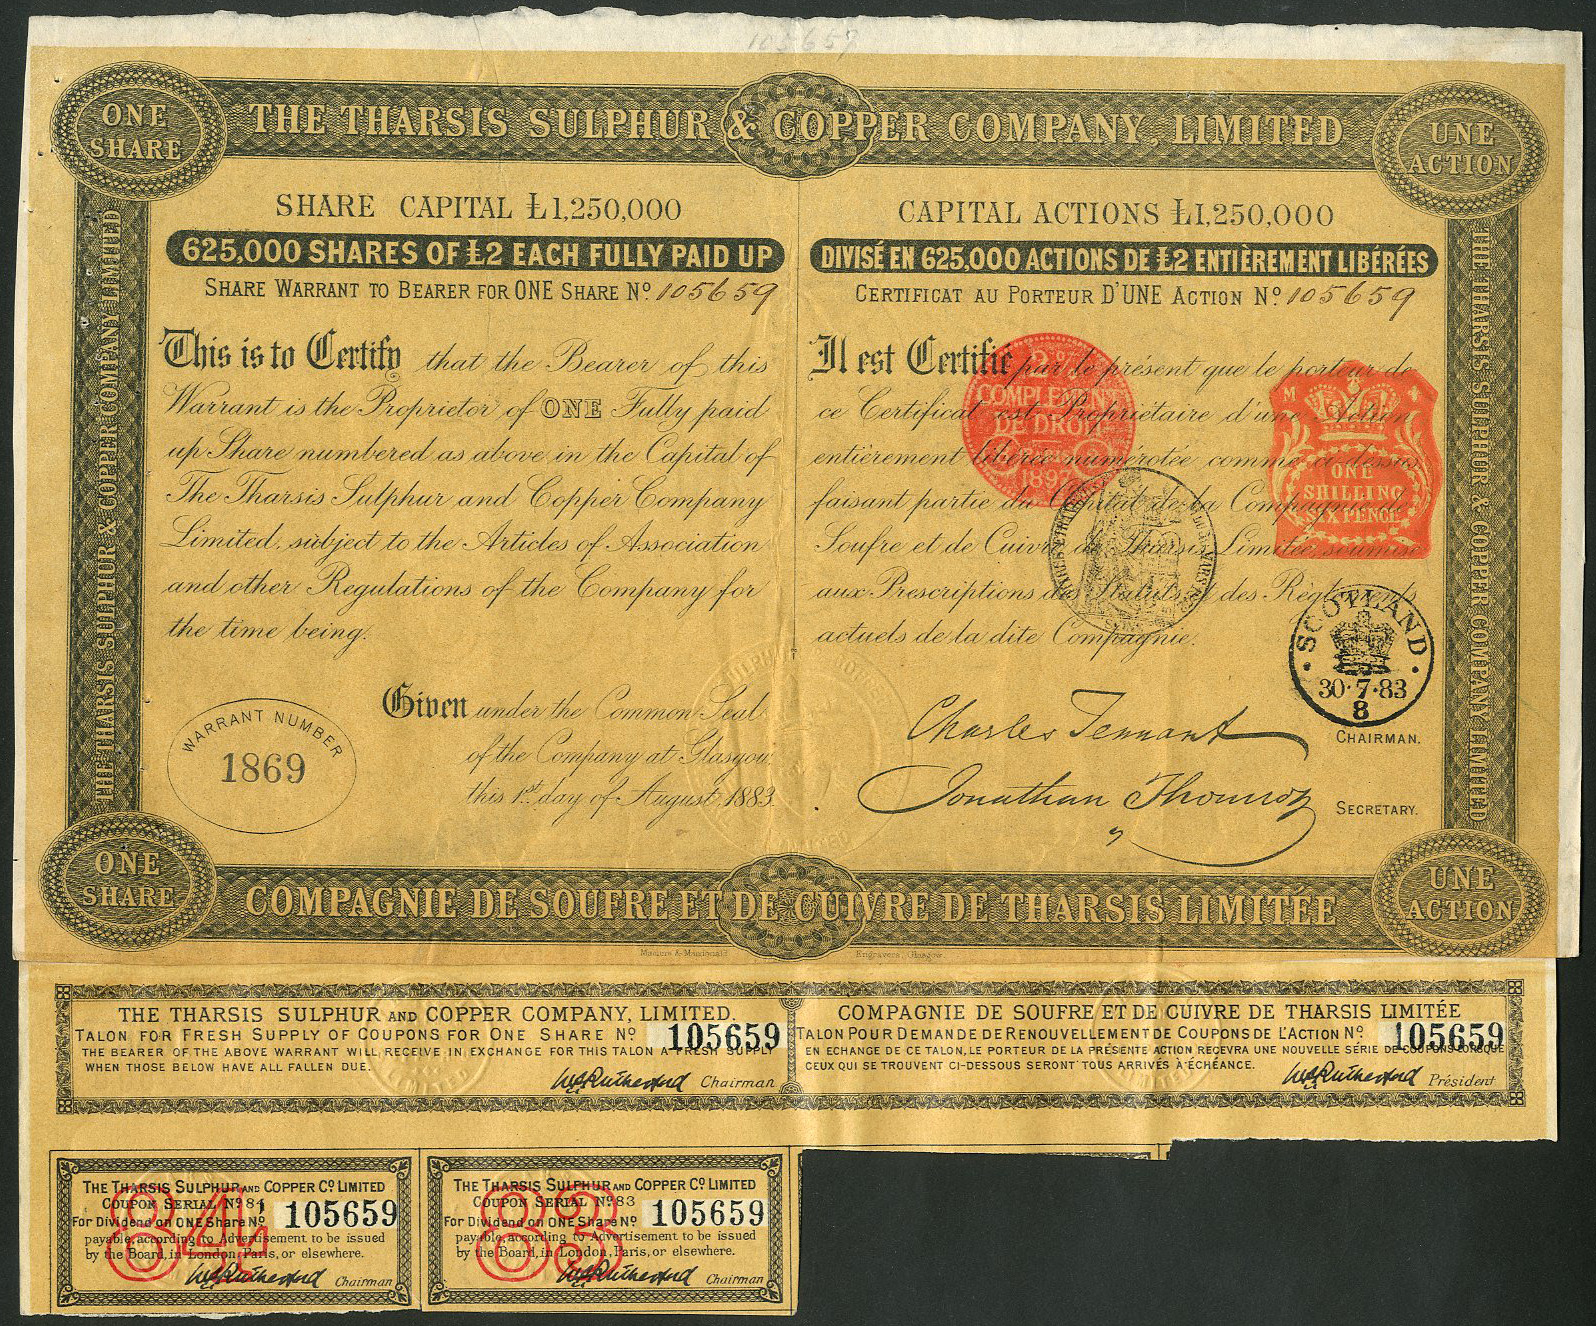 105657
ONE SHARE
THE THARSIS SULPHUR & COPPER COMPANY, LIMITED
UNE ACTION
THE THARSIS SULPHUR & COPPER COMPANY LIMITED
SHARE CAPITAL £1,250,000
625,000 SHARES OF £2 EACH FULLY PAID UP
SHARE WARRANT TO BEARER FOR ONE SHARE No. 105659
This is to Certify that the Bearer of this
Warrant is the Proprietor of ONE Fully paid
up Share numbered as above in the Capital of
The Tharsis Sulphur and Copper Company
Limited, subject to the Articles of Association
and other Regulations of the Company for
the time being.
Given under the Common Seal
of the Company at Glasgow
this 1st day of August 1883.
WARRANT NUMBER
1869
CAPITAL ACTIONS £1,250,000
DIVISÉ EN 625,000 ACTIONS DE £2 ENTIÈREMENT LIBÉRÉES
CERTIFICAT AU PORTEUR D'UNE ACTION No. 105659
Il est Certifié par le présent que le porteur de
ce Certificat est Propriétaire d'une Action
entièrement libérée numérotée comme ci-dessus
faisant partie du Capital de la Compagnie de
Soufre et de Cuivre de Tharsis Limitée, soumise
aux Prescriptions des Statuts et des Règlements
actuels de la dite Compagnie.
2%
COMPLEMENT
DE DROIT
M 4
ONE
SHILLING
SIX PENCE
SCOTLAND
30·7·83
8
Charles Tennant
CHAIRMAN.
Jonathan Thomson
SECRETARY.
THE THARSIS SULPHUR & COPPER COMPANY LIMITED
ONE SHARE
COMPAGNIE DE SOUFRE ET DE CUIVRE DE THARSIS LIMITÉE
UNE ACTION
Maclure & Macdonald Engravers, Glasgow
THE THARSIS SULPHUR AND COPPER COMPANY, LIMITED.
TALON FOR FRESH SUPPLY OF COUPONS FOR ONE SHARE No 105659
THE BEARER OF THE ABOVE WARRANT WILL RECEIVE IN EXCHANGE FOR THIS TALON A FRESH SUPPLY
WHEN THOSE BELOW HAVE ALL FALLEN DUE.
Chairman
COMPAGNIE DE SOUFRE ET DE CUIVRE DE THARSIS LIMITÉE
TALON POUR DEMANDE DE RENOUVELLEMENT DE COUPONS DE L'ACTION No. 105659
EN ECHANGE DE CE TALON, LE PORTEUR DE LA PRÉSENTE ACTION RECEVRA UNE NOUVELLE SÉRIE DE COUPONS LORSQUE
CEUX QUI SE TROUVENT CI-DESSOUS SERONT TOUS ARRIVÉS À ÉCHÉANCE.
Président
THE THARSIS SULPHUR AND COPPER Co LIMITED
COUPON SERIAL No 84
For Dividend on ONE Share No 105659
payable, according to Advertisement to be issued
by the Board, in London, Paris, or elsewhere.
Chairman
84
THE THARSIS SULPHUR AND COPPER Co LIMITED
COUPON SERIAL No 83
For Dividend on ONE Share No 105659
payable, according to Advertisement to be issued
by the Board, in London, Paris, or elsewhere.
Chairman
83